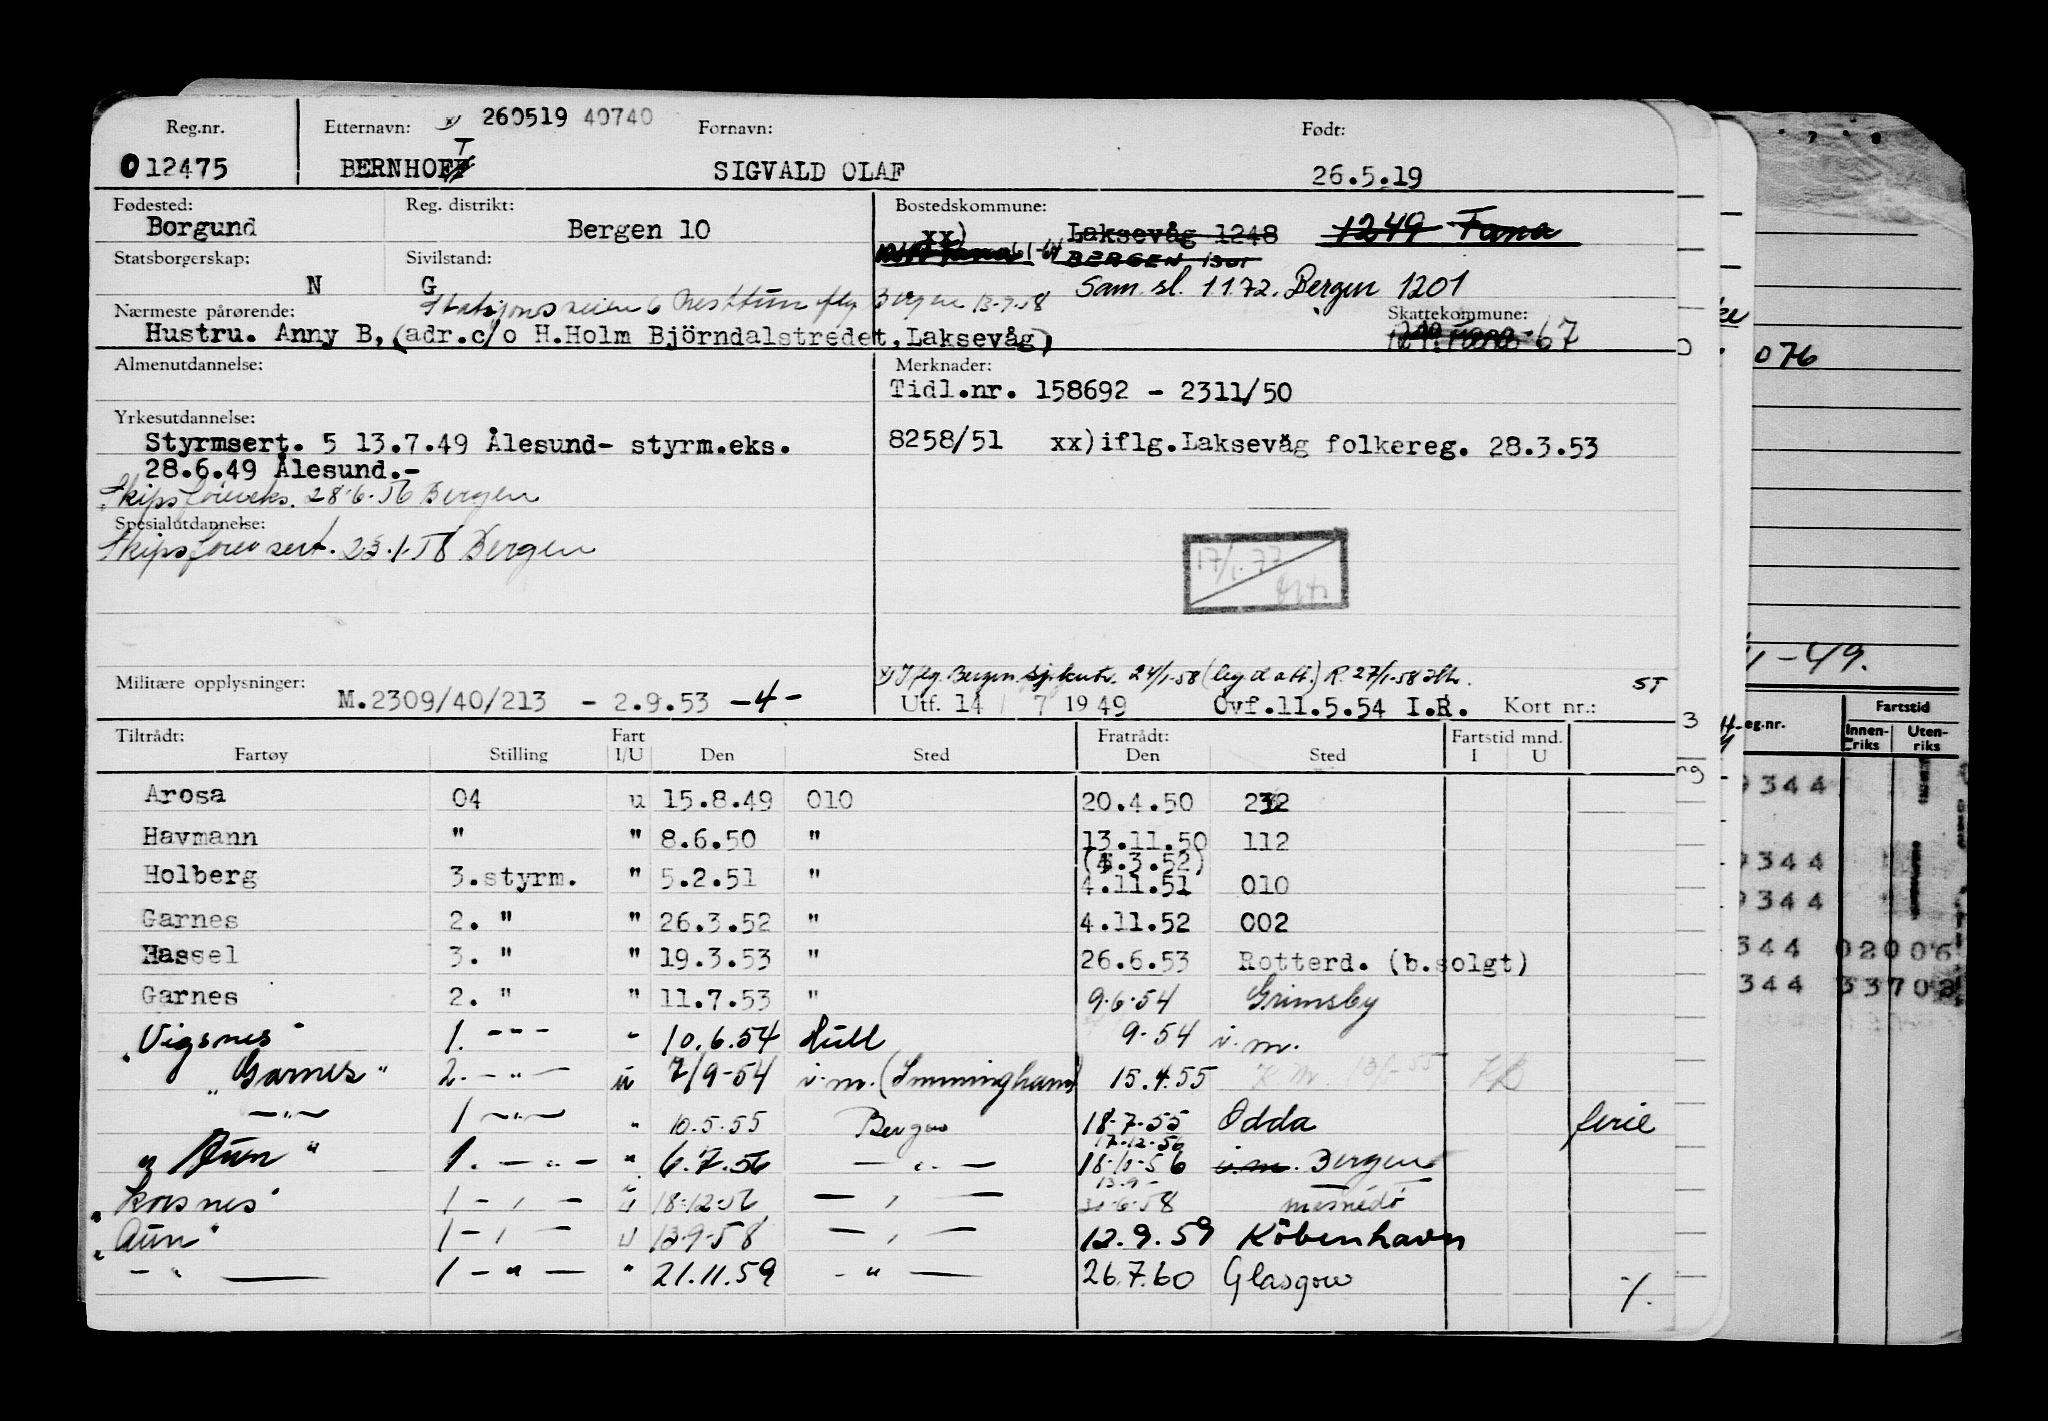 Reg.nr. Etternavn: x) 260519 40740 Fornavn: Født:
012475 BERNHOFT SIGVALD OLAF 26.5.19
Fødested: Reg. distrikt: Bostedskommune:
Borgund Bergen 10 xx) Laksevåg 1248 1249 Fana
BERGEN 1301
Statsborgerskap: Sivilstand:
N G Sam.sl. 1172. Bergen 1201
Stasjonsveien 6 Nesttun iflg Bergen 13-9-58
Nærmeste pårørende: Skattekommune:
Hustru. Anny B, (adr.c/o H.Holm Björndalstredet, Laksevåg) -67
Almenutdannelse: Merknader:
Tidl.nr. 158692 - 2311/50
Yrkesutdannelse:
Styrmsert. 5 13.7.49 Ålesund- styrm.eks. 8258/51 xx)iflg.Laksevåg folkereg. 28.3.53
28.6.49 Ålesund.-
Skipsførereks. 28-6-56 Bergen
Spesialutdannelse:
Skipsførersert. 23.1.58 Bergen
17/1.77
x) Iflg. Bergen sjøkntr. 24/1-58 R. 27/1-58
Militære opplysninger: ST
M.2309/40/213 - 2.9.53 -4- Utf. 14/7 1949 Ovf.11.5.54 I.R. Kort nr.:
Tiltrådt: Fart Fratrådt: Fartstid mnd.
Fartøy Stilling I/U Den Sted Den Sted I U
Arosa 04 u 15.8.49 010 20.4.50 232
Havmann " " 8.6.50 " 13.11.50 112
(4.3.52)
Holberg 3.styrm. " 5.2.51 " 4.11.51 010
Garnes 2. " " 26.3.52 " 4.11.52 002
Hassel 3. " " 19.3.53 " 26.6.53 Rotterd. (b.solgt)
Garnes 2. " " 11.7.53 " 9.6.54 Grimsby
"Vigsnes" 1. -"- " 10.6.54 Hull 9-54 i.m.
"Garnes" 2. -"- u 7/9-54 i.m. (Immingham) 15.4.55
-"- 1 -"- " 10.5.55 Bergen 18.7.55 Odda ferie
17-12-56
"Aun" 1. -"- " 6.7.56 -"- 18-10-56 i.m. Bergen
13.9-
"Korsnes" 1 -"- u 18-12-56 -"- 30-6-58
"Aun" 1 -"- u 13-9-58 -"- 12.9.59 København
-"- 1 -"- " 21.11.59 -"- 26.7.60 Glasgow
·/.
076
-49.
eg.nr. Fartstid
Innenriks Utenriks
9344
9344
9344
344 020 006
344 337 02